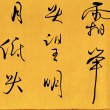 霜举
头望明
月低头